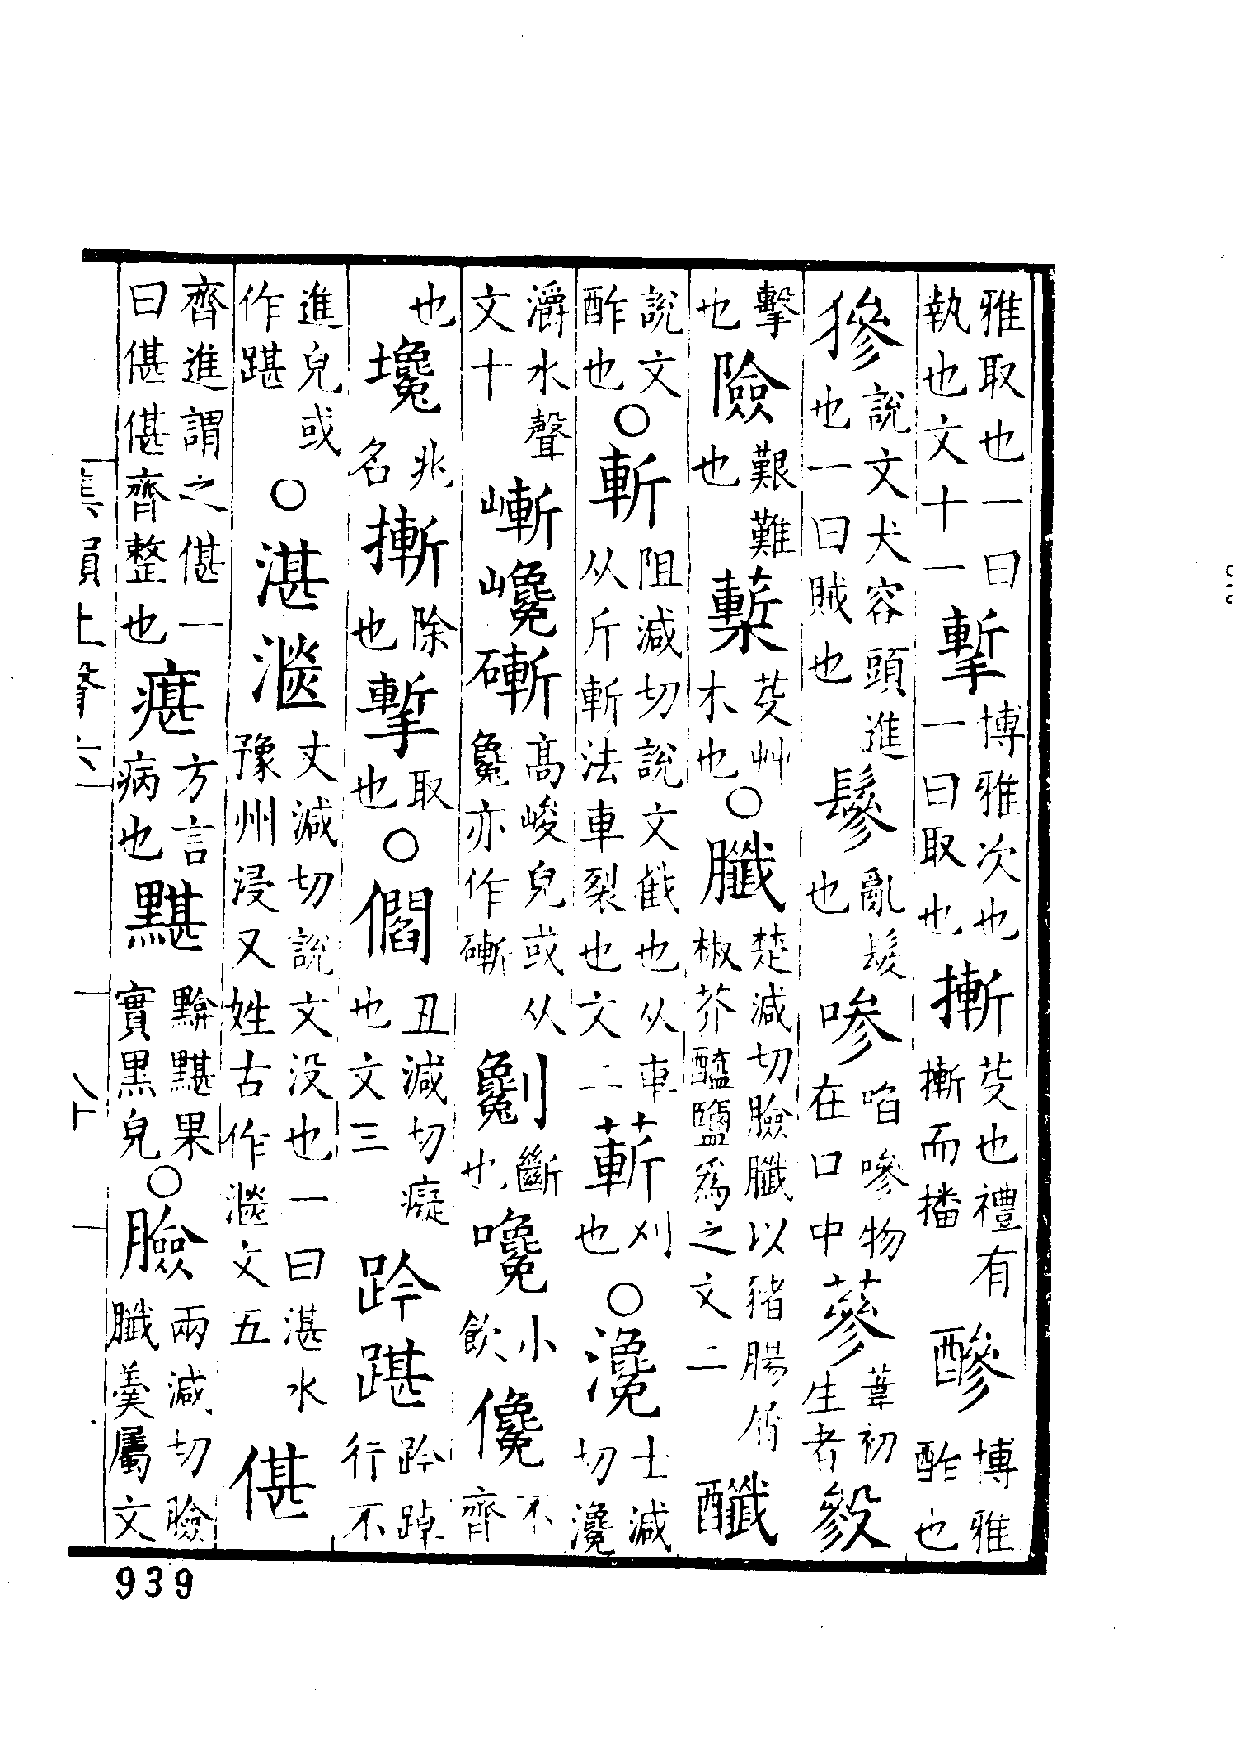 雅取也一曰執也文十一摲博雅次也一曰取也摲芟也禮有摲而播醦博雅酢也
犙說文犬容頭進也一曰賊也鬖亂髮也嘇㗖嘇物在口中蔘葦初生者毵
擊也險艱難也蔪芟艸木也○臘楚減切臉臘以豬腸屑椒芥醯鹽爲之文二醶
說文酢也○斬阻減切說文截也从車从斤斬法車裂也文二蔪刈也○瀺士減切瀺
灂水聲文十嶄巉磛高峻皃或从毚亦作磛劖斷也嚵小飲儳不齊
也堍兆名摲除也摲取也○𠐩丑減切癡也文三趻踸趻踔行不
進皃或作踸○湛㴸丈減切說文没也一曰湛水豫州浸又姓古作㴸文五偡
齊進謂之偡一曰偡偡齊整也㽎方言病也黮黭黮果實黑皃○臉兩減切臉臘羹屬文
集韻上聲六 八十一
939